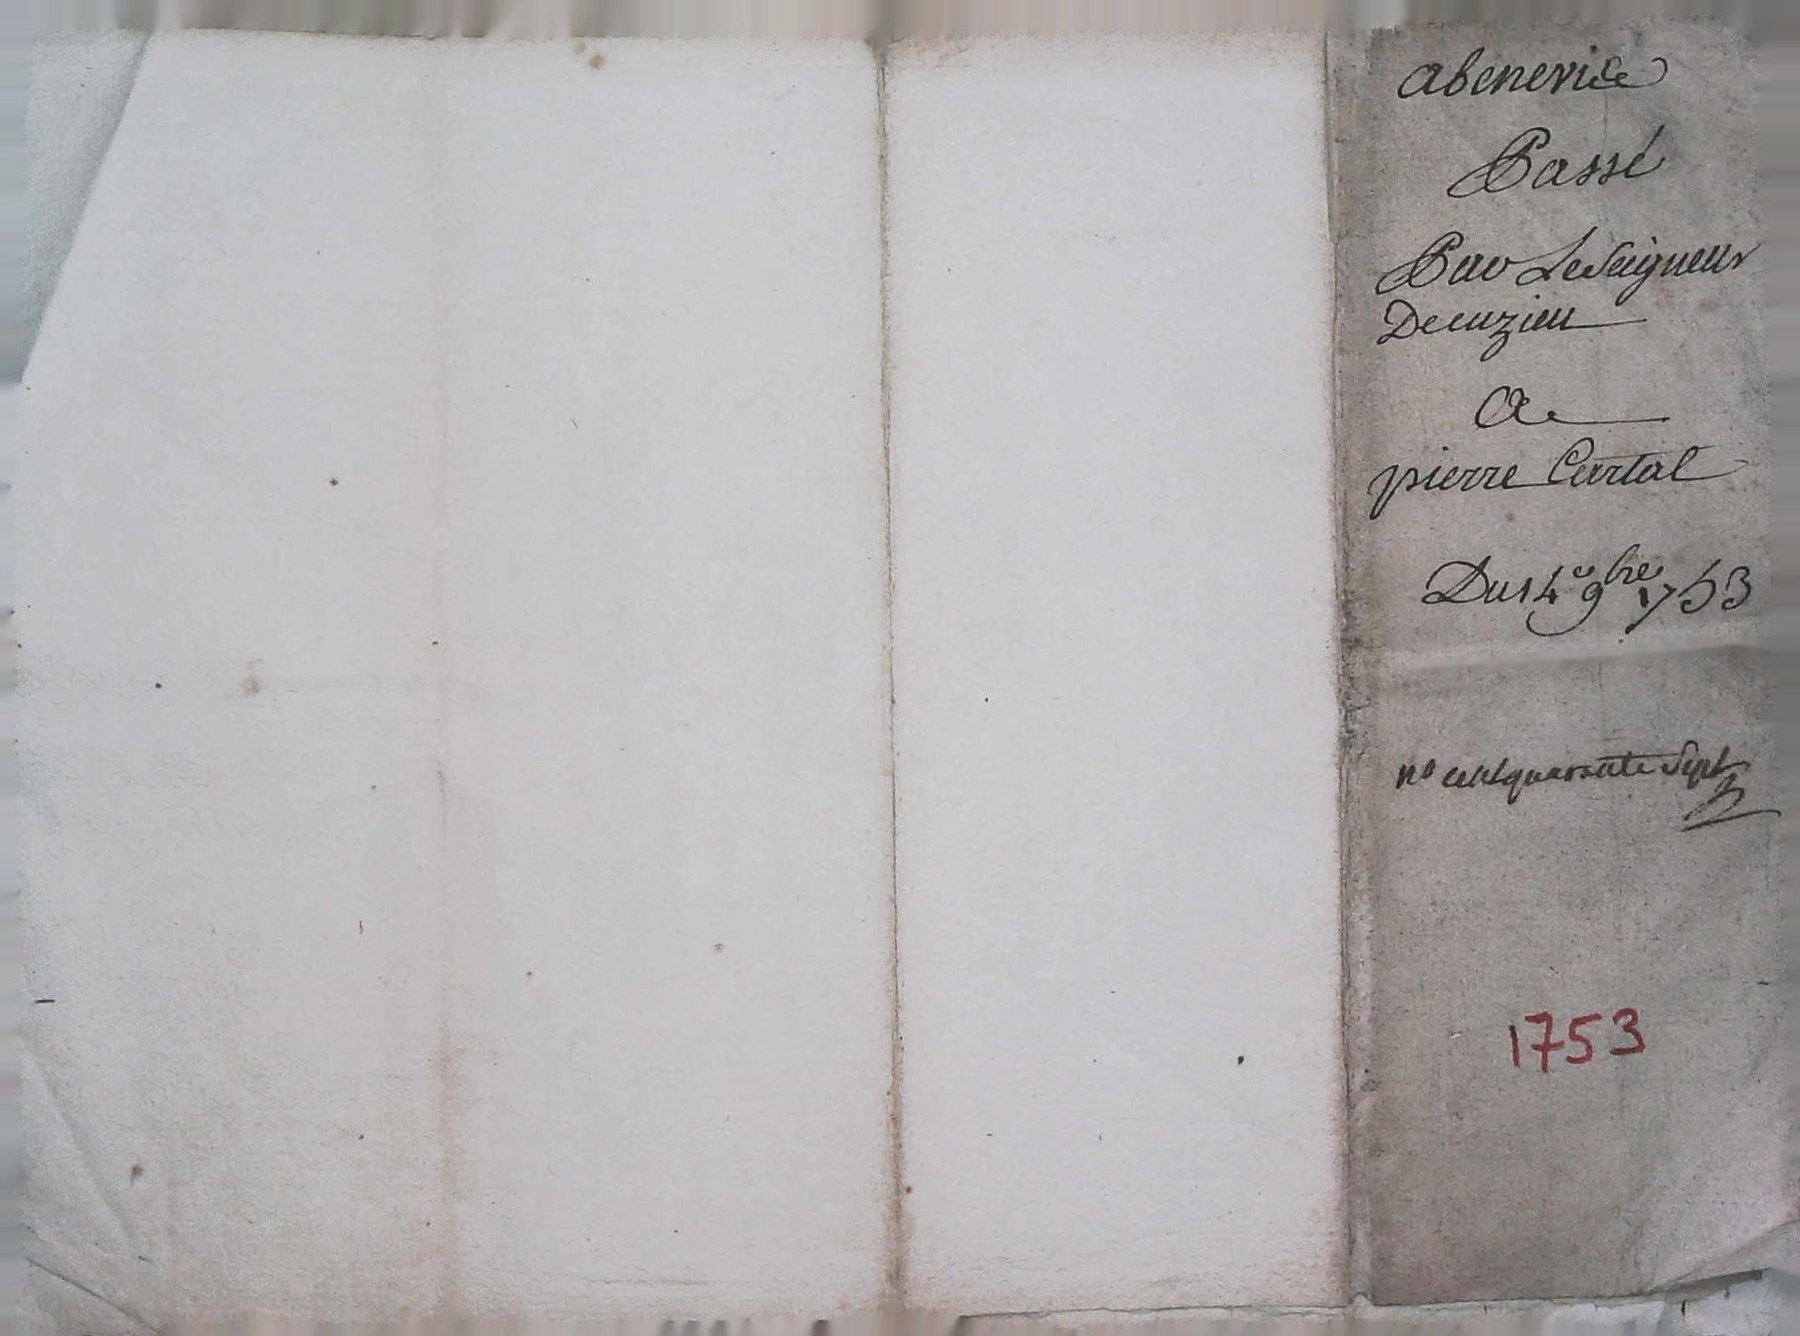 abenevice
Passé
Par Le Seigneur
De cuzieu
A
pierre Cartal
Du 14e 9bre 1753
no cent quarante Sept
1753